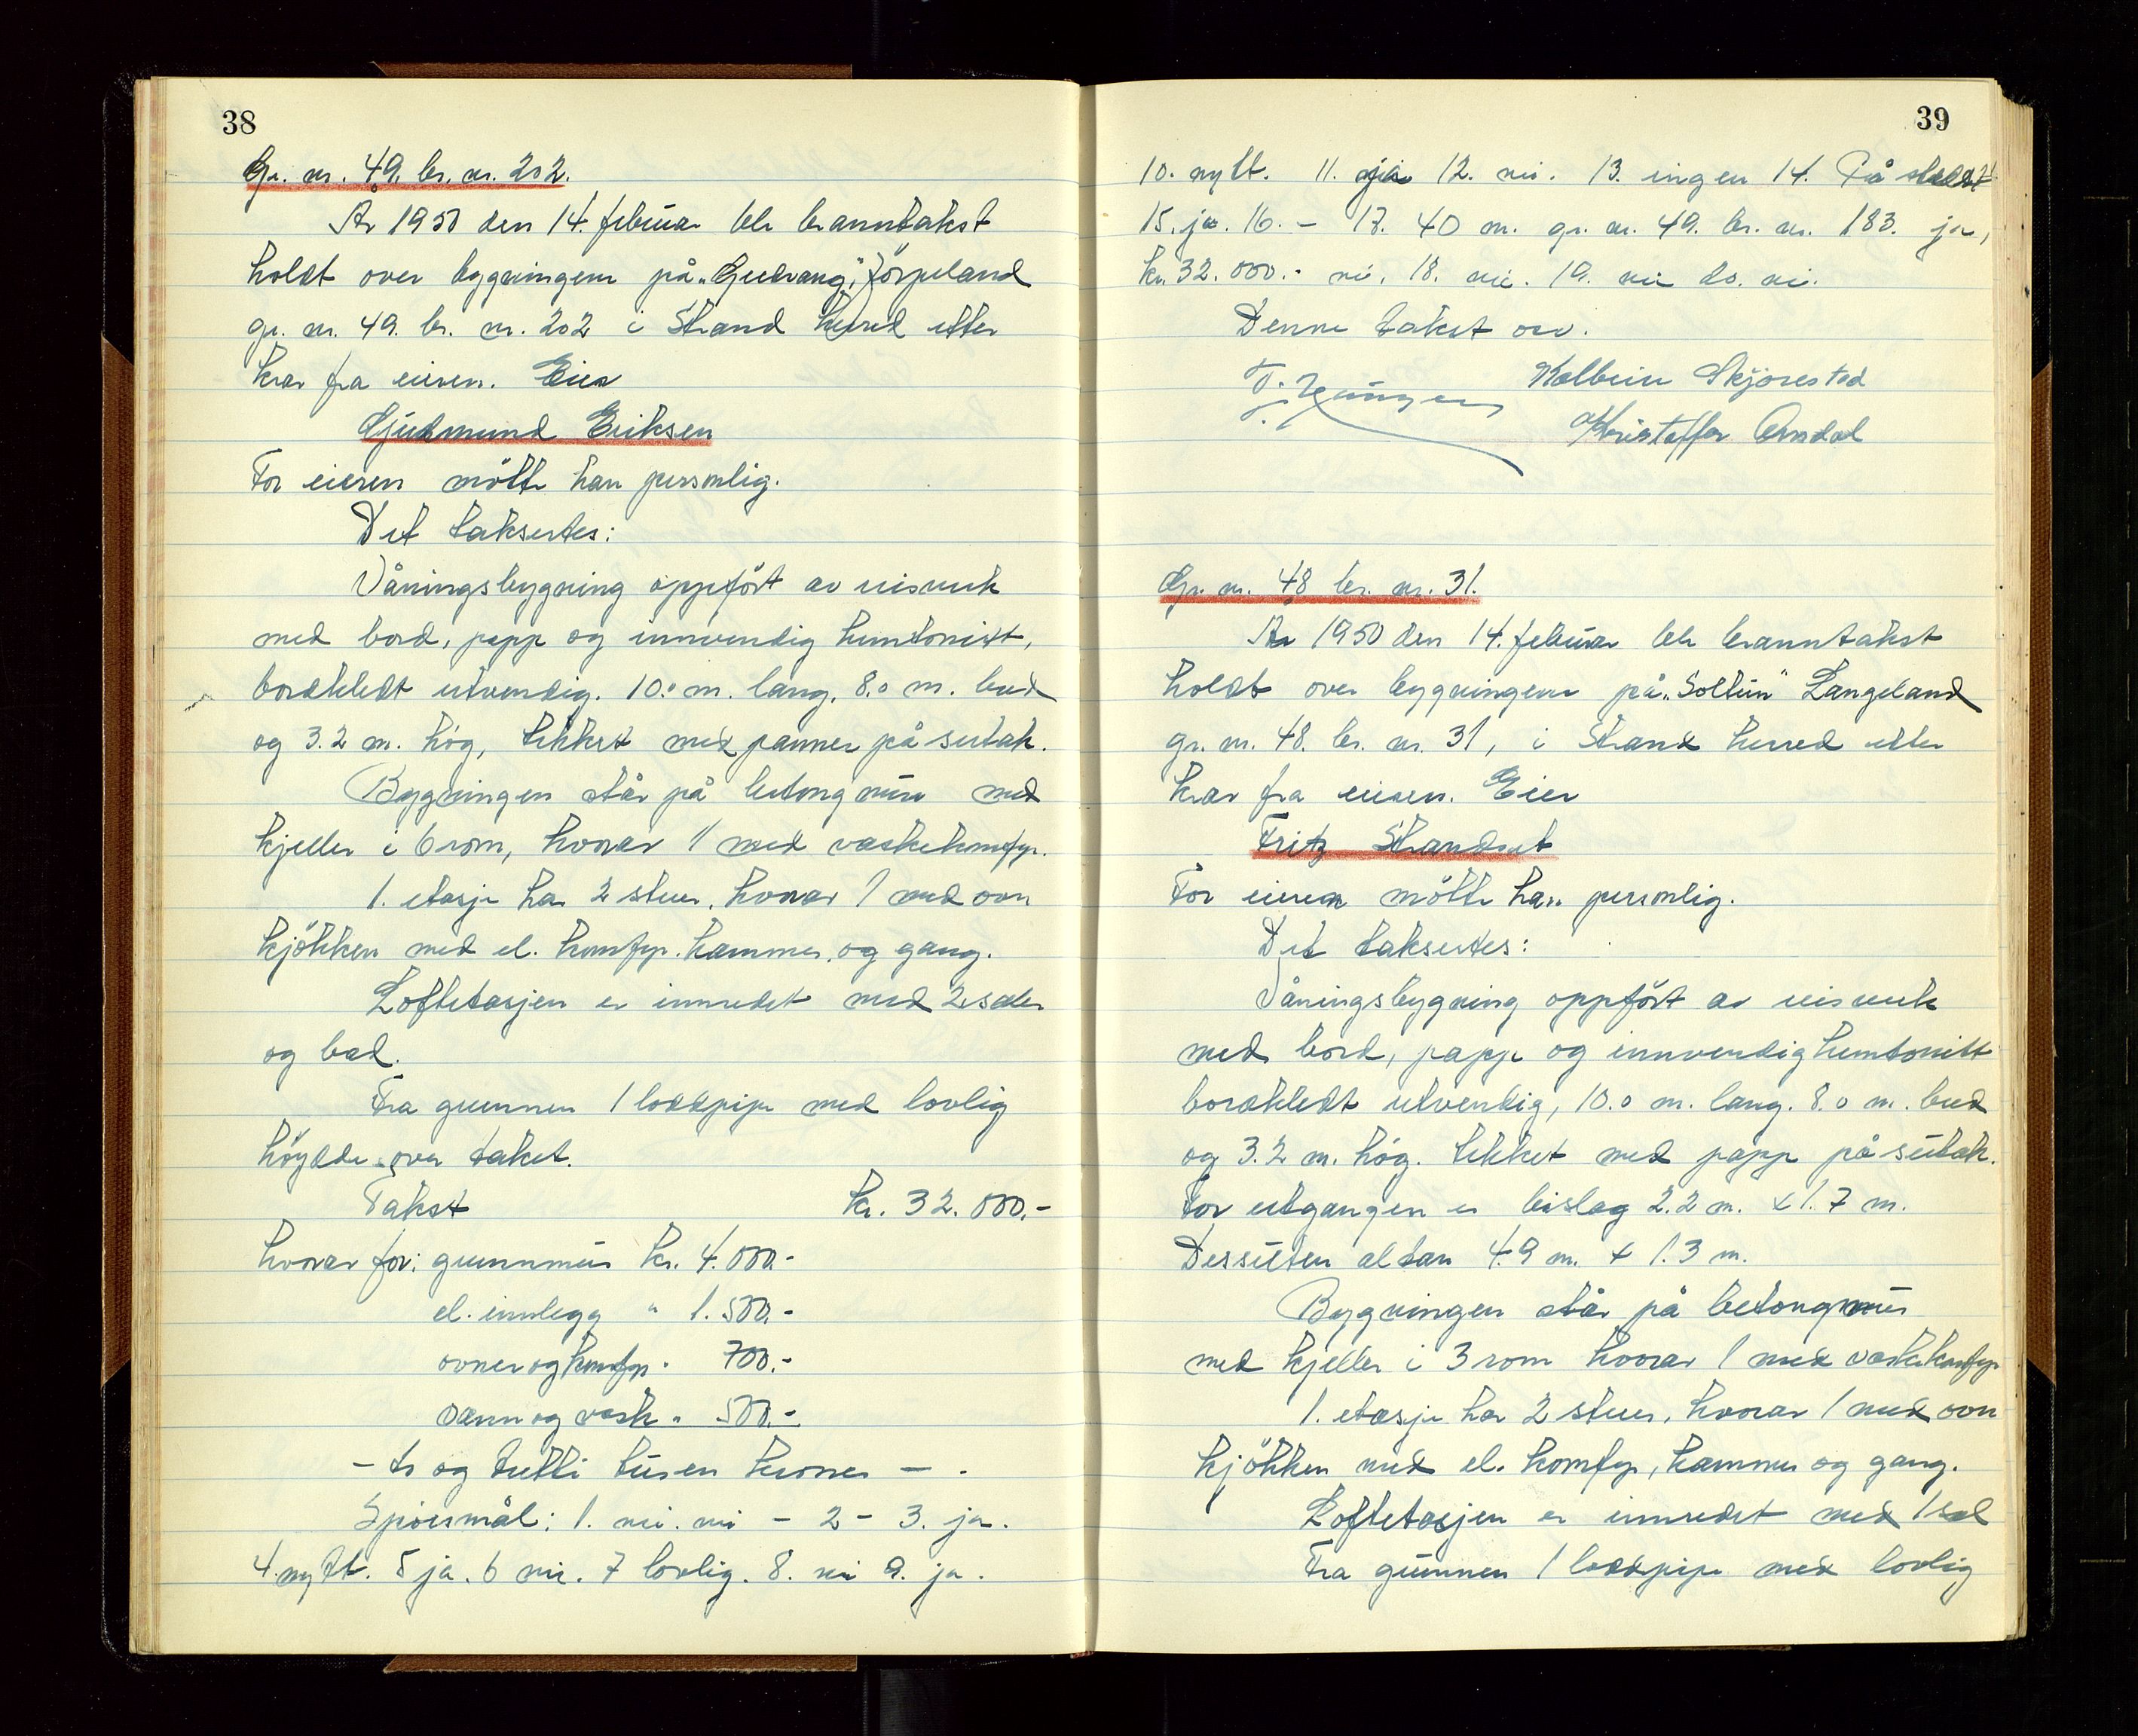 38
Gr. nr. 49. br. nr. 202.
År 1950 den 14. februar ble branntakst
holdt over bygningene på „Gudvang", Jörpeland
gr. nr. 49. br. nr. 202 i Strand herred etter
krav fra eieren. Eier
Gudmund Eriksen
For eieren mötte han personlig.
Det taksertes:
Våningsbygning oppfört av reisverk
med bord, papp og innvendig huntonitt,
bordkledt utvendig. 10.0 m. lang, 8.0 m. bred
og 3.2 m. hög, tekket med panner på sutak.
Bygningen står på betongmur med
kjeller i 6 rom, hvorav 1 med vaskekomfyr.
1. etasje har 2 stuer, hvorav 1 med ovn
kjökken med el. komfyr. kammer, og gang.
Loftetasjen er innredet med 2 saler
og bad.
Fra grunnen 1 loddpipe med lovlig
höydde over taket.
Takst kr. 32.000.-
hvorav for: grunnmur kr. 4.000.-
el. innlegg " 1.500.-
ovner og komfyr " 700.-
vann og vask " 500.-
- to og tretti tusen kroner - .
Spörsmål: 1. nei. nei - 2 - 3. ja.
4. nytt. 5 ja. 6 nei. 7 lovlig. 8. nei 9. ja.
39
10. nytt. 11. ja 12. nei. 13. ingen 14. På stedet
15. ja. 16. - 17. 40 m. gr. nr. 49. br. nr. 183. ja,
kr. 32.000.- nei, 18. nei. 19. nei 20. nei.
Denne takst osv.
Kolbein Skjörestad
Kristoffer
Gr. nr. 48 br. nr. 31.
År 1950 den 14. februar ble branntakst
holdt over bygningene på „Soltun" Langeland
gr. nr. 48. br. nr. 31, i Strand herred etter
krav fra eieren. Eier
Fritz Strandset
For eieren mötte han personlig.
Det taksertes:
Våningsbygning oppfört av reisverk
med bord, papp og innvendig huntonitt
bordkledt utvendig, 10.0 m. lang. 8.0 m. bred
og 3.2 m. hög. tekket med papp på sutak.
For utgangen er bislag 2.2 m. x 1.7 m.
Dessuten altan 4.9 m. x 1.3 m.
Bygningen står på betongmur
med kjeller i 3 rom hvorav 1 med vaskekomfyr
1. etasje har 2 stuer, hvorav 1 med ovn
kjökken med el. komfyr, kammer og gang.
Loftetasjen er innredet med 1 sal
Fra grunnen 1 loddpipe med lovlig